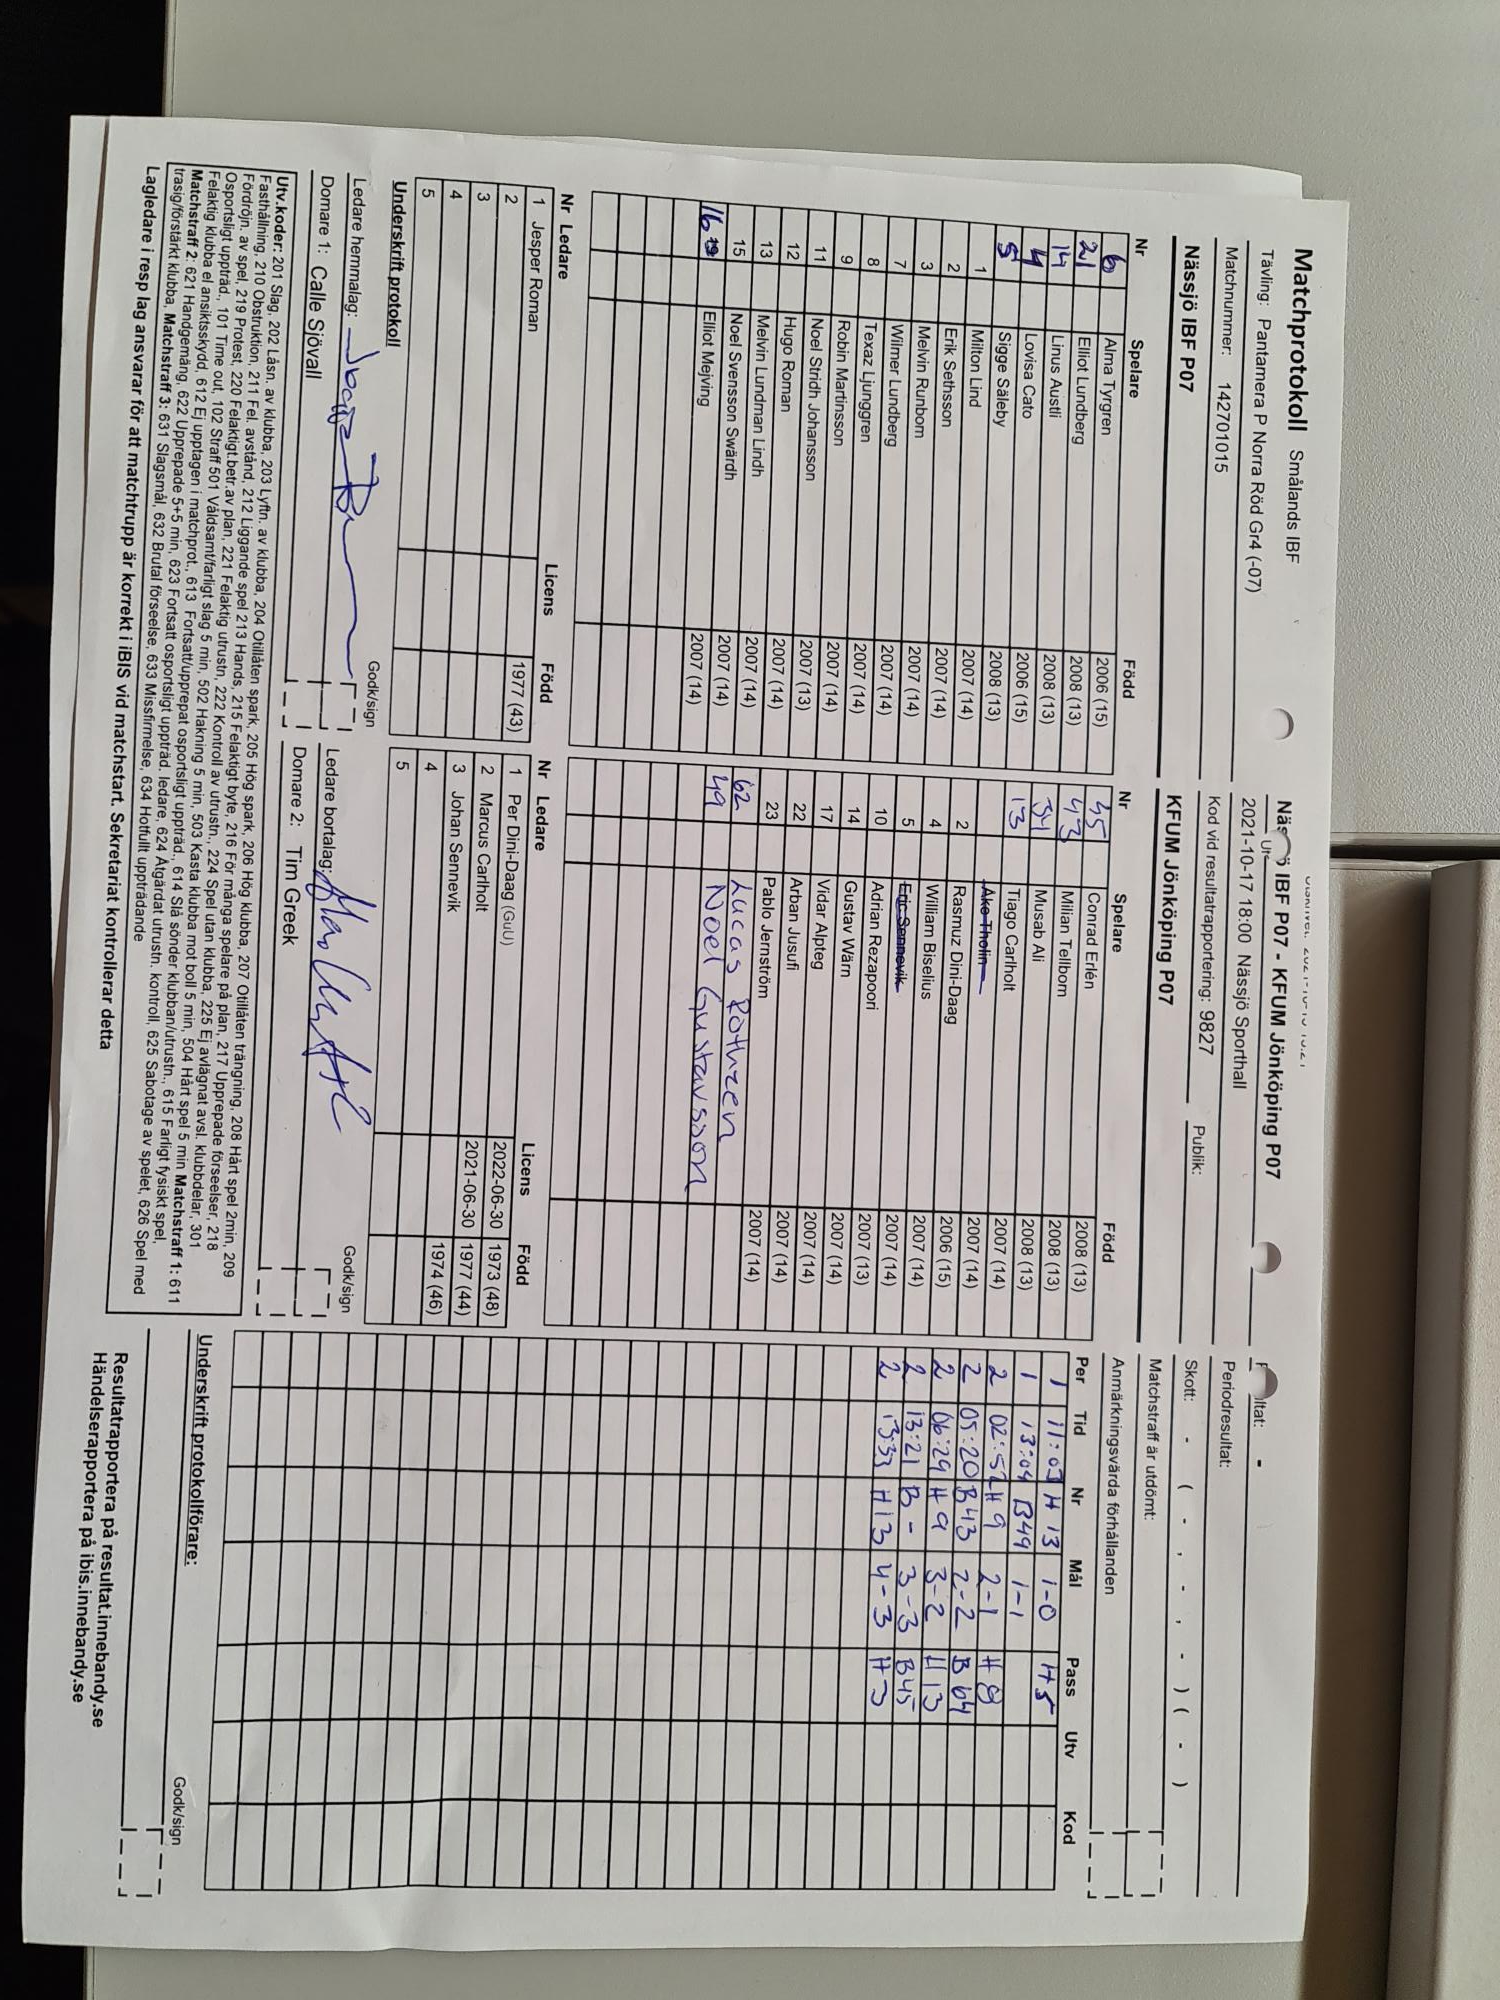 Matchprotokoll Smålands IBF
Tävling: Pantamera P Norra Röd Gr4 (-07)
Matchnummer: 142701015
Nässjö IBF P07 - KFUM Jönköping P07
2021-10-17 18:00 Nässjö Sporthall
Kod vid resultatrapportering: 9827
Publik:
Periodresultat:
Skott: - ( - , - , - ) ( - )
Matchstraff är utdömt:
Anmärkningsvärda förhållanden
Nässjö IBF P07
Nr Spelare Född
6 Alma Tyrgren 2006 (15)
21 Elliot Lundberg 2008 (13)
14 Linus Austli 2008 (13)
4 Lovisa Cato 2006 (15)
5 Sigge Säleby 2008 (13)
1 Milton Lind 2007 (14)
2 Erik Sethsson 2007 (14)
3 Melvin Runbom 2007 (14)
7 Wilmer Lundberg 2007 (14)
8 Texaz Ljunggren 2007 (14)
9 Robin Martinsson 2007 (14)
11 Noel Stridh Johansson 2007 (13)
12 Hugo Roman 2007 (14)
13 Melvin Lundman Lindh 2007 (14)
15 Noel Svensson Swärdh 2007 (14)
16 Elliot Mejving 2007 (14)
Nr Ledare Licens Född
1 Jesper Roman 1977 (43)
2
3
4
5
KFUM Jönköping P07
Nr Spelare Född
45 Conrad Erlén 2008 (13)
43 Milian Tellbom 2008 (13)
Musab Ali 2008 (13)
13 Tiago Carlholt 2008 (13)
Åke Tholin 2007 (14)
2 Rasmuz Dini-Daag 2007 (14)
4 William Biselius 2006 (15)
5 Eric Sennevik 2007 (14)
10 Adrian Rezapoori 2007 (14)
14 Gustav Wärn 2007 (13)
17 Vidar Alpteg 2007 (14)
22 Arban Jusufi 2007 (14)
23 Pablo Jernström 2007 (14)
62 Lucas Rothzen
49 Noel Gustavsson
Nr Ledare Licens Född
1 Per Dini-Daag (GuU) 2022-06-30 1973 (48)
2 Marcus Carlholt 2021-06-30 1977 (44)
3 Johan Sennevik 1974 (46)
4
5
Per Tid Nr Mål Pass Utv Kod
1 11:03 H 13 1-0 H 5
1 13:04 B49 1-1
2 02:52 H 9 2-1 H 8
2 05:20 B43 2-2 B 64
2 06:29 H 9 3-2 H 13
2 13:21 B - 3-3 B45
2 13:33 H13 4-3 H3
Underskrift protokoll
Godk/sign
Ledare hemmalag:
Ledare bortalag:
Godk/sign
Domare 1: Calle Sjövall
Domare 2: Tim Greek
Utv.koder: 201 Slag, 202 Låsn. av klubba, 203 Lyftn. av klubba, 204 Otillåten spark, 205 Hög spark, 206 Hög klubba, 207 Otillåten trängning, 208 Hårt spel 2min, 209
Fasthållning, 210 Obstruktion, 211 Fel. avstånd, 212 Liggande spel 213 Hands, 215 Felaktigt byte, 216 För många spelare på plan, 217 Upprepade förseelser, 218
Fördröjn. av spel, 219 Protest, 220 Felaktigt.betr.av plan, 221 Felaktig utrustn, 222 Kontroll av utrustn, 224 Spel utan klubba, 225 Ej avlägnat avsl. klubbdelar, 301
Osportsligt uppträd., 101 Time out, 102 Straff 501 Våldsamt/farligt slag 5 min, 502 Hakning 5 min, 503 Kasta klubba mot boll 5 min, 504 Hårt spel 5 min Matchstraff 1: 611
Felaktig klubba el ansiktsskydd, 612 Ej upptagen i matchprot., 613 Fortsatt/upprepat osportsligt uppträd., 614 Slå sönder klubban/utrustn., 615 Farligt fysiskt spel,
Matchstraff 2: 621 Handgemäng, 622 Upprepade 5+5 min, 623 Fortsatt osportsligt uppträd, ledare, 624 Åtgärdat utrustn. kontroll, 625 Sabotage av spelet, 626 Spel med
trasig/förstärkt klubba, Matchstraff 3: 631 Slagsmål, 632 Brutal förseelse, 633 Missfirmelse, 634 Hotfullt uppträdande
Lagledare i resp lag ansvarar för att matchtrupp är korrekt i iBIS vid matchstart. Sekretariat kontrollerar detta
Underskrift protokollförare:
Godk/sign
Resultatrapportera på resultat.innebandy.se
Händelserapportera på ibis.innebandy.se